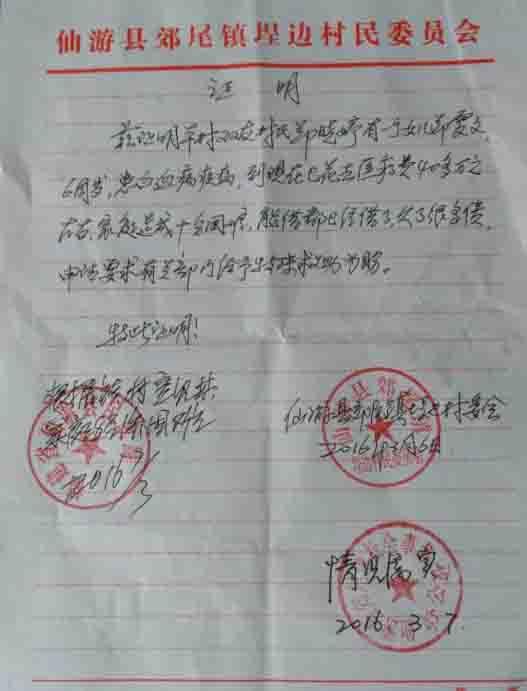 仙游县郊尾镇埕边村民委员会
证 明
兹证明本村双友村民郑 有一女儿郑雯文,
6周岁,患白血病疾病,到现在已花去医疗费40多万元
左右,家庭造成十分困难,能借都已经借了,欠了很多债,
申请要求有关部门给予特殊求助为盼。
特此证明!
根据 村意见其
家庭 困难
2016
3
仙游县郊尾镇埕边村委会
2016年3月6日
情况属实
2016. 3. 7.